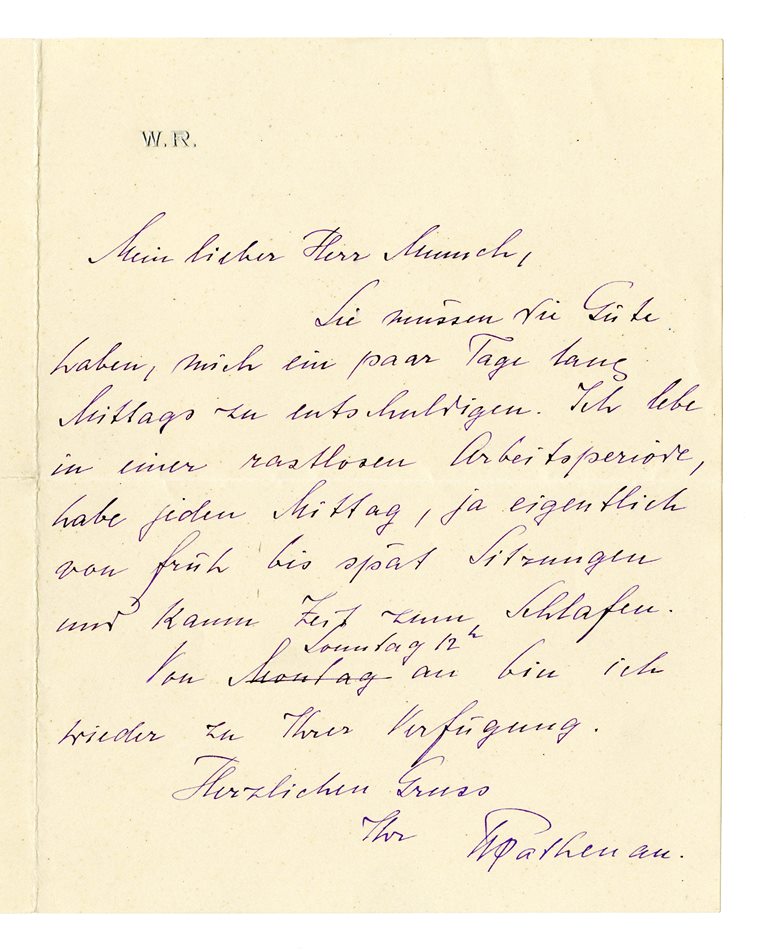 W. R.
Mein lieber Herr Munch,
Sie müssen die Güte
haben, mich ein paar Tage lang
Mittags zu entschuldigen. Ich lebe
in einer rastlosen Arbeitsperiode,
habe jeden Mittag, ja eigentlich
von früh bis spät Sitzungen
und kaum Zeit zum Schlafen.
Sonntag 12 h
Von Montag an bin ich
wieder zu Ihrer Verfügung.
Herzlichen Gruss
Ihr WRathenau.